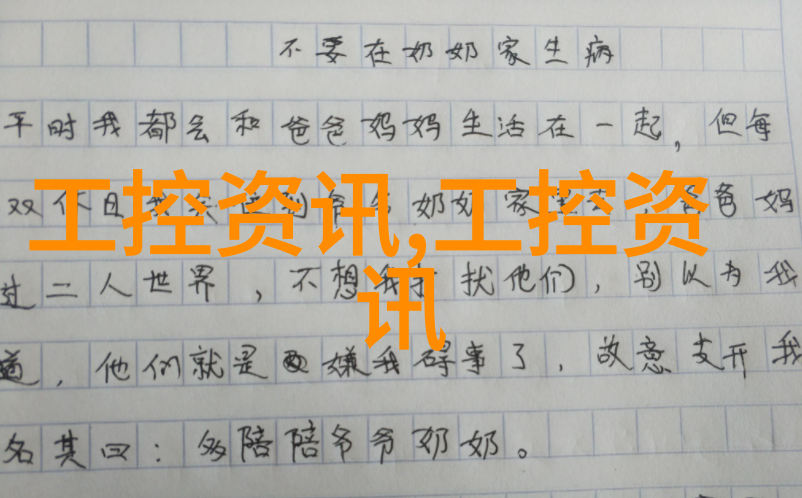 不要在奶奶家生病
平时我都会和爸爸妈妈生活在一起，但每
双休日我 奶奶家 爸妈
工控资讯,工控资
讯
过二人世界，不想我打扰他们，别以为我
道，他们就是嫌我碍事了，故意支开我
名其曰：多陪陪爷爷奶奶。